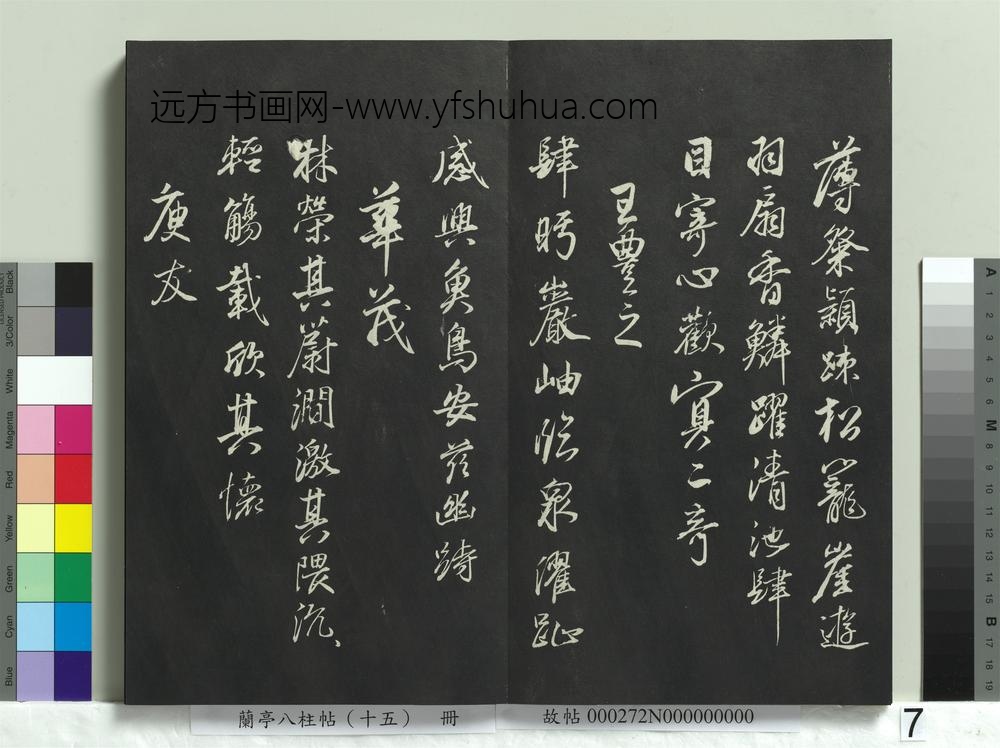 远方书画网-www.yfshuhua.com
薄粲穎疎松籠崖遊
羽扇香鱗躍清池肆
目寄心歡冥二奇
王豐之
肆眄巖岫臨泉濯趾
感興魚鳥安茲幽峙
華茂
林榮其蔚澗激其隈汎、
輕觴載欣其懷
庾友
蘭亭八柱帖（十五） 冊
故帖 000272N000000000
7
Black
3/Color
White
Magenta
Red
Yellow
Green
Cyan
Blue
A
1
2
3
4
5
6
M
8
9
10
11
12
13
14
15
B
17
18
19